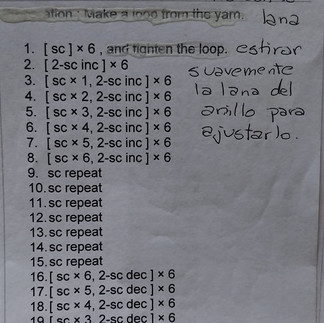 ation. Make a loop from the yarn. lana
1. [ sc ] × 6 , and tighten the loop. estirar
2. [ 2-sc inc ] × 6 suavemente
3. [ sc × 1, 2-sc inc ] × 6 la lana del
4. [ sc × 2, 2-sc inc ] × 6 anillo para
5. [ sc × 3, 2-sc inc ] × 6 ajustarlo.
6. [ sc × 4, 2-sc inc ] × 6
7. [ sc × 5, 2-sc inc ] × 6
8. [ sc × 6, 2-sc inc ] × 6
9. sc repeat
10. sc repeat
11. sc repeat
12. sc repeat
13. sc repeat
14. sc repeat
15. sc repeat
16. [ sc × 6, 2-sc dec ] × 6
17. [ sc × 5, 2-sc dec ] × 6
18. [ sc × 4, 2-sc dec ] × 6
19. [ sc × 3, 2-sc dec ] × 6